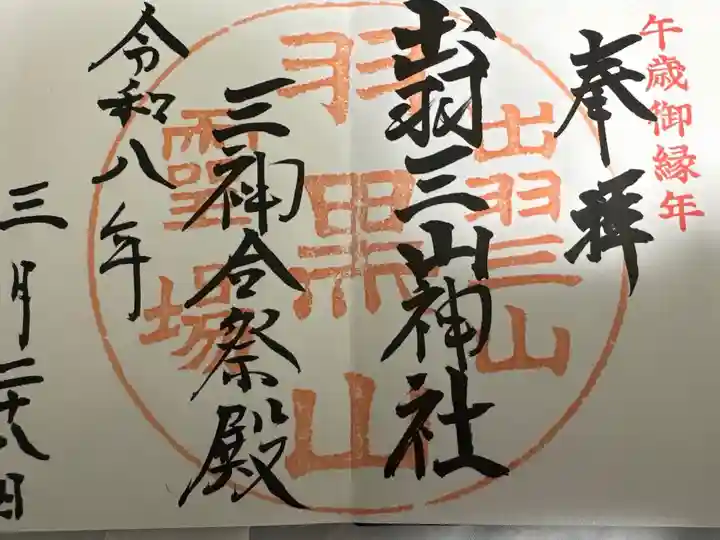 午歳御縁年
奉拝
出羽三山神社
三神合祭殿
令和八年
三月二十八日
出羽三山
羽黒山
霊場